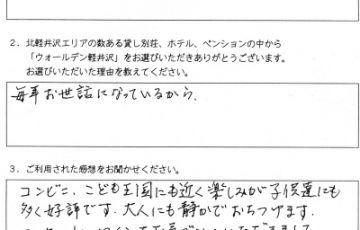 2．北軽井沢エリアの数ある貸し別荘、ホテル、ペンションの中から
「ウォールデン軽井沢」をお選びいただきありがとうございます。
お選びいただいた理由を教えてください。
毎年お世話になっているから。
3．ご利用された感想をお聞かせください。
コンビニ、こども王国にも近く楽しみが子供達にも
多く好評です。大人にも静かでおちつけます。